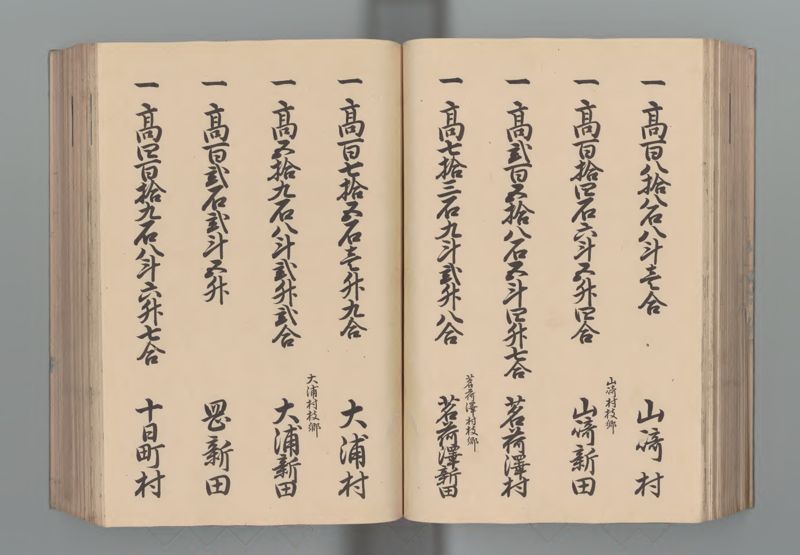 一 高百八拾八石八斗壱合 山﨑村
一 高百拾四石六斗五升四合
山﨑村枝郷
山﨑新田
一 高弐百五拾八石五斗四升七合 茗荷澤村
一 高七拾三石九斗弐升八合
茗荷澤村枝郷
茗荷澤新田
一 高百七拾五石壱升九合 大浦村
一 高五拾九石八斗弐升弐合
大浦村枝郷
大浦新田
一 高百弐石弐斗五升 新田
一 高四百拾九石八斗六升七合 十日町村